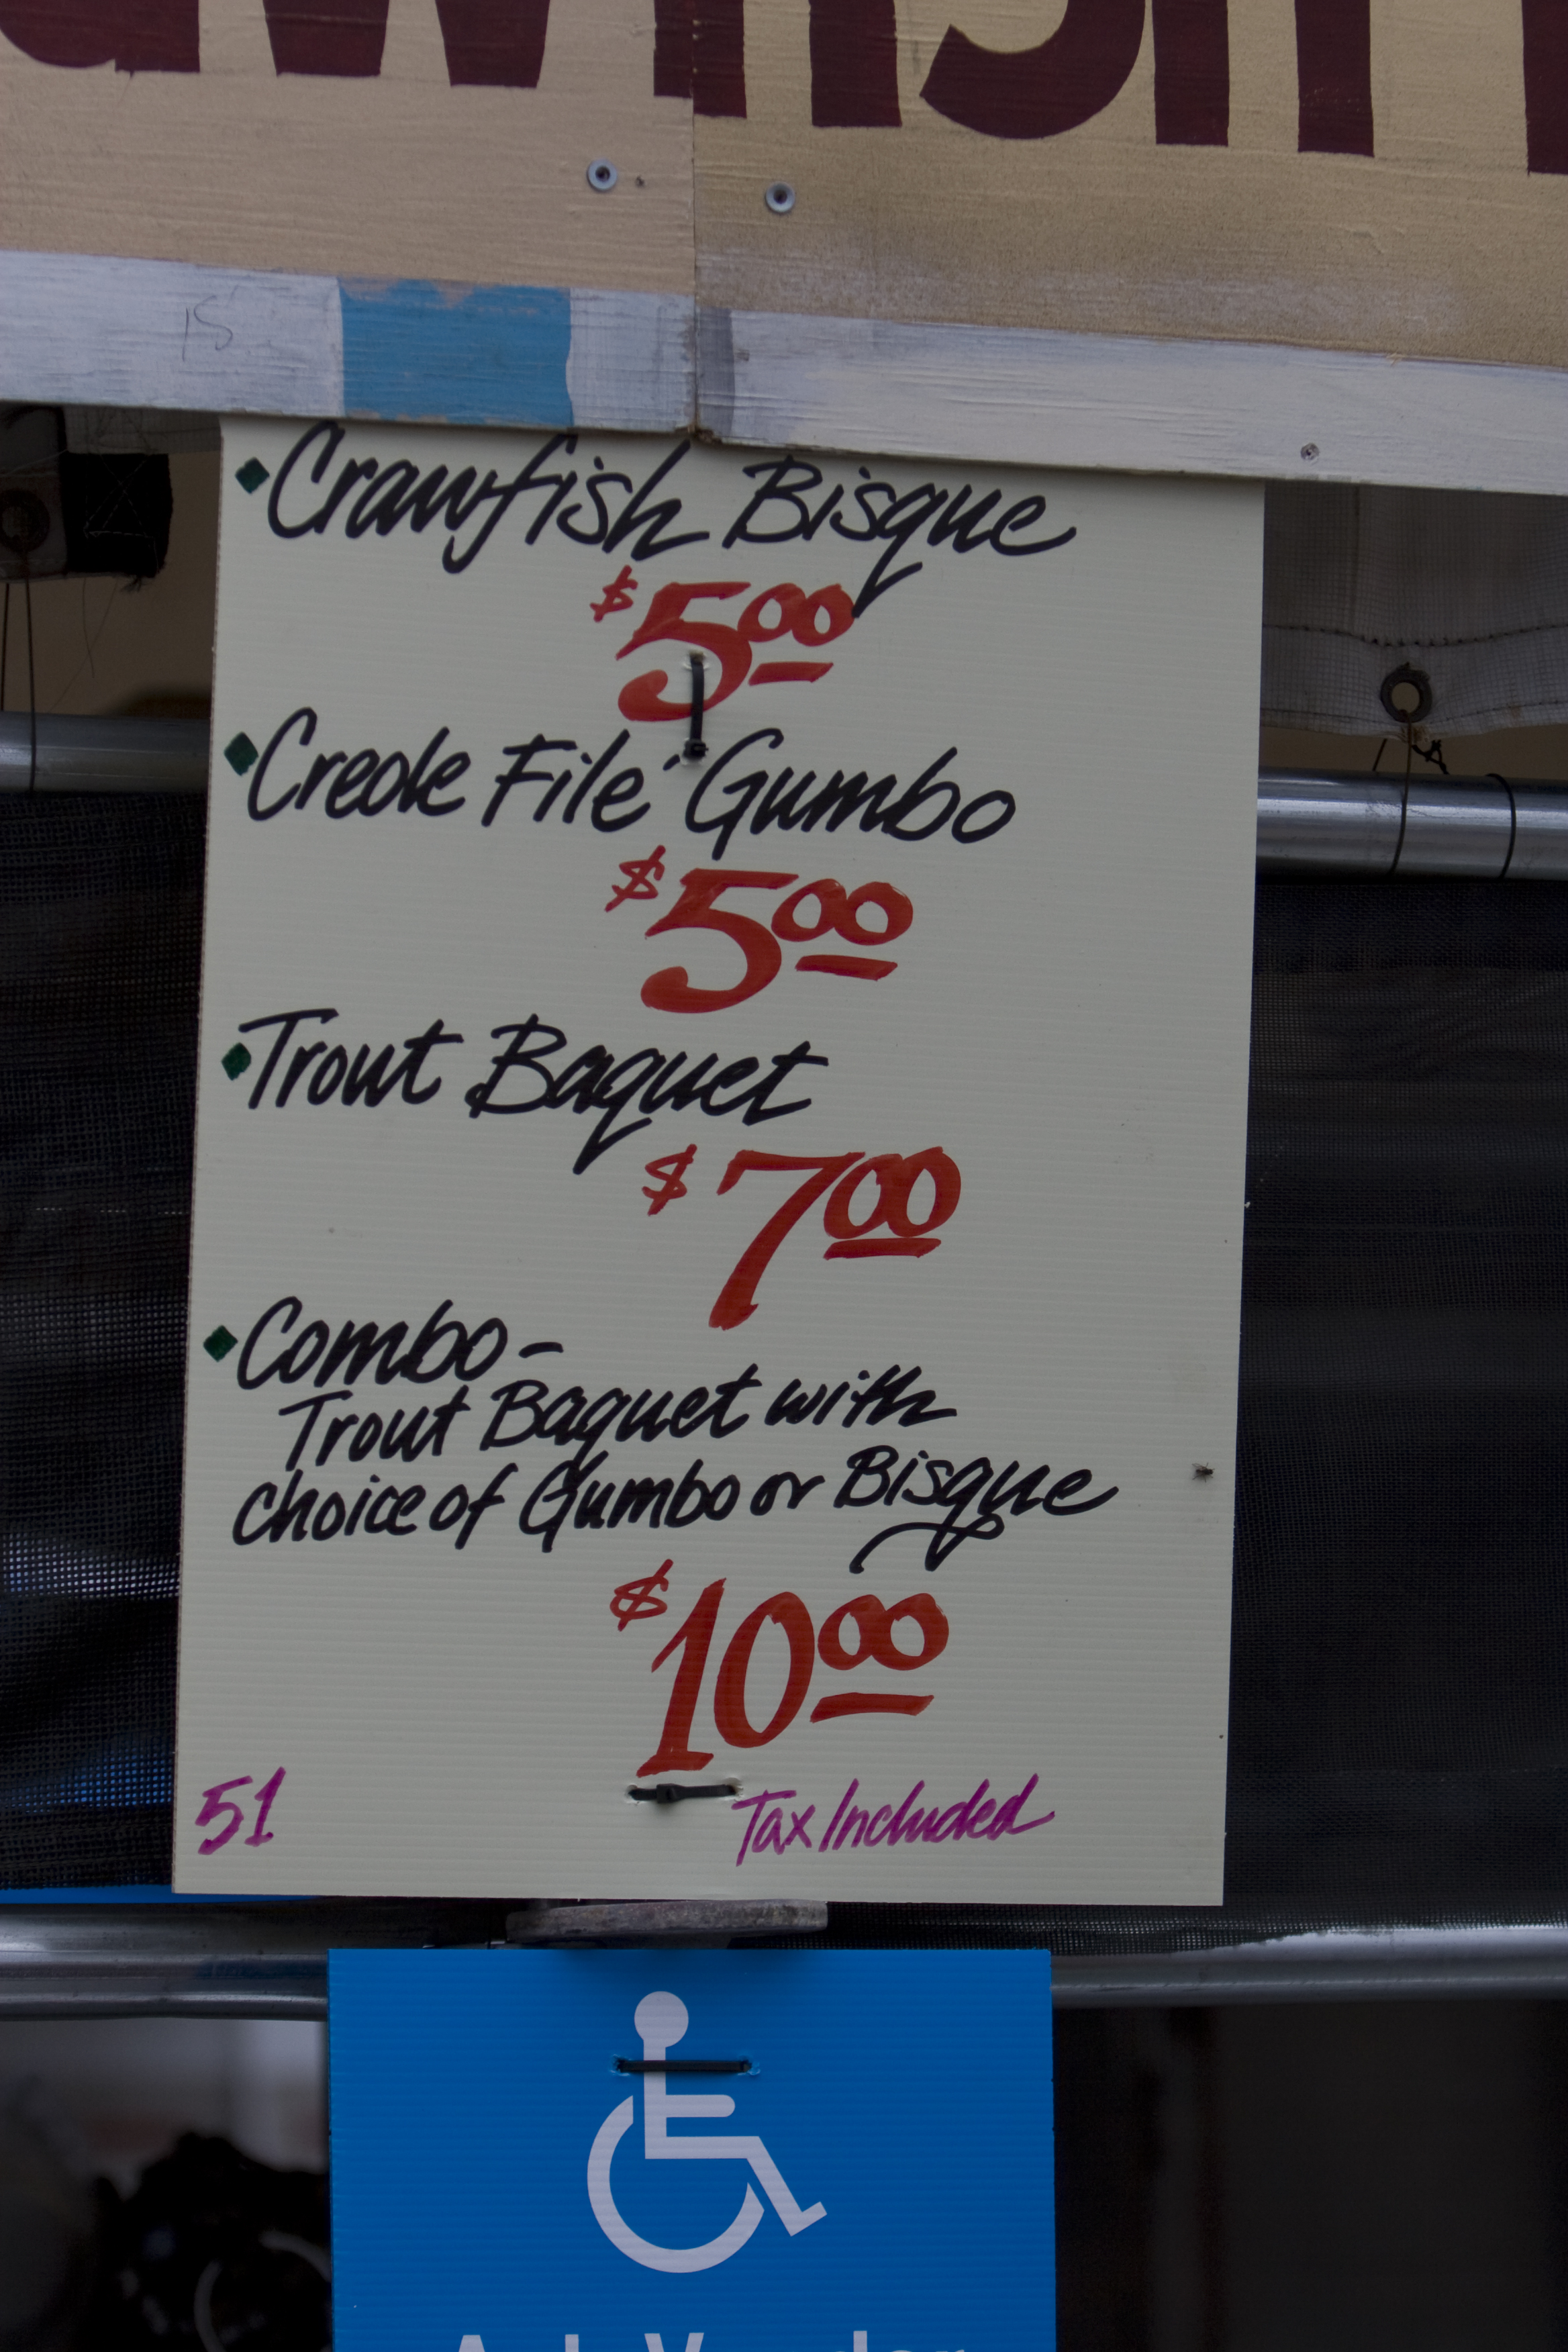 15
Crawfish Bisque
$5.00
Creole File' Gumbo
$5.00
Trout Baquet
$7.00
Combo-
Trout Baquet with
choice of Gumbo or Bisque
$10.00
51
Tax Included